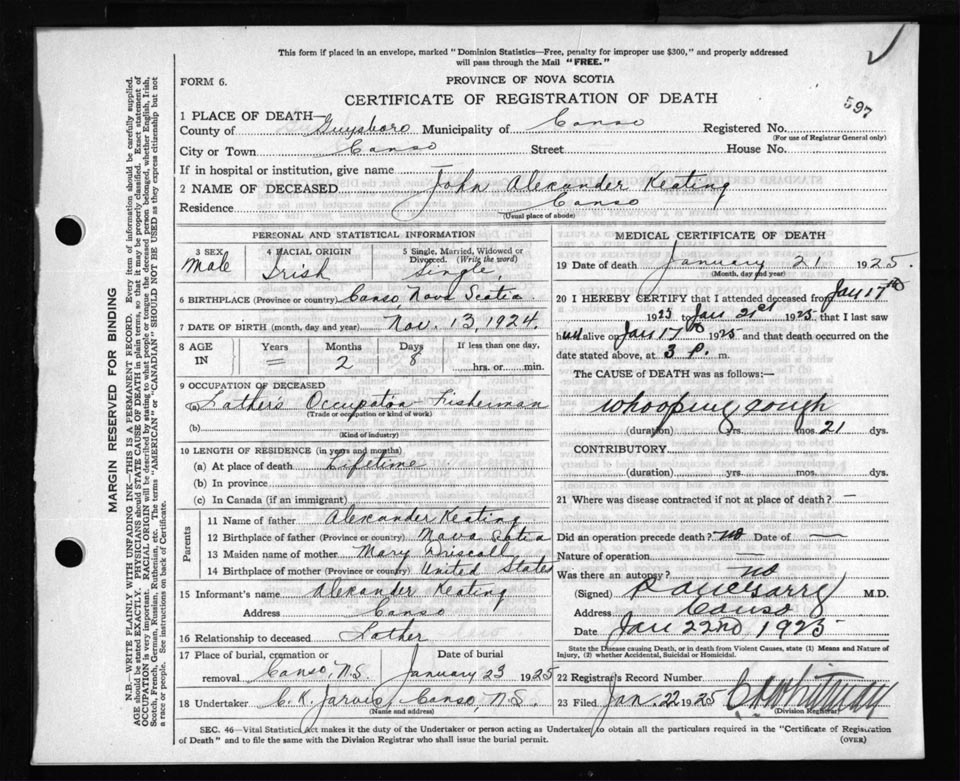 This form if placed in an envelope, marked "Dominion Statistics—Free, penalty for improper use $300," and properly addressed
will pass through the Mail "FREE."
FORM 6.
PROVINCE OF NOVA SCOTIA
CERTIFICATE OF REGISTRATION OF DEATH
597
1 PLACE OF DEATH—
County of Guysboro Municipality of Canso Registered No.
(For use of Registrar General only)
City or Town Canso Street House No.
If in hospital or institution, give name
2 NAME OF DECEASED John Alexander Keating
Residence Canso
(Usual place of abode)
PERSONAL AND STATISTICAL INFORMATION
3 SEX Male
4 RACIAL ORIGIN Irish
5 Single, Married, Widowed or Divorced. (Write the word) Single
6 BIRTHPLACE (Province or country) Canso Nova Scotia
7 DATE OF BIRTH (month, day and year) Nov. 13, 1924.
8 AGE IN Years = Months 2 Days 8 If less than one day, hrs. or min.
9 OCCUPATION OF DECEASED
(a) Father's Occupation Fisherman
(Trade or occupation or kind of work)
(b)
(Kind of industry)
10 LENGTH OF RESIDENCE (in years and months)
(a) At place of death Lifetime
(b) In province
(c) In Canada (if an immigrant)
Parents
11 Name of father Alexander Keating
12 Birthplace of father (Province or country) Nova Scotia
13 Maiden name of mother Mary Driscoll
14 Birthplace of mother (Province or country) United States
15 Informant's name Alexander Keating
Address Canso
16 Relationship to deceased Father
17 Place of burial, cremation or removal Canso, N.S. Date of burial January 23 1925
18 Undertaker C. K. Jarvis, Canso, N.S.
(Name and address)
MEDICAL CERTIFICATE OF DEATH
19 Date of death January 21 1925.
(Month, day and year)
20 I HEREBY CERTIFY that I attended deceased from Jan 17th
1925 to Jan 21st 1925, that I last saw
him alive on Jan 17th 1925 and that death occurred on the
date stated above, at 3 P. m.
The CAUSE of DEATH was as follows:—
Whooping cough
(duration) yrs. mos. 21 dys.
CONTRIBUTORY
(duration) yrs. mos. dys.
21 Where was disease contracted if not at place of death? —
Did an operation precede death? no Date of —
Nature of operation —
Was there an autopsy? no
(Signed) M.D.
Address Canso
Date Jan 22nd 1925
State the Disease causing Death, or in death from Violent Causes, state (1) Means and Nature of
Injury, (2) whether Accidental, Suicidal or Homicidal.
22 Registrar's Record Number
23 Filed Jan. 22 1925 Whitman
(Division Registrar)
SEC. 46—Vital Statistics Act makes it the duty of the Undertaker or person acting as Undertaker to obtain all the particulars required in the "Certificate of Registration
of Death" and to file the same with the Division Registrar who shall issue the burial permit. (OVER)
MARGIN RESERVED FOR BINDING
N.B.—WRITE PLAINLY WITH UNFADING INK—THIS IS A PERMANENT RECORD. Every item of information should be carefully supplied.
AGE should be stated EXACTLY. PHYSICIANS should STATE CAUSE OF DEATH in plain terms, so that it may be properly classified. Exact statement of
OCCUPATION is very important. RACIAL ORIGIN will be described by stating to what people or tongue the deceased person belonged, whether English, Irish,
Scotch, French, German, Russian, Ruthenian, etc. The terms "AMERICAN" or "CANADIAN" SHOULD NOT BE USED as they express citizenship but not
a race or people. See instructions on back of Certificate.